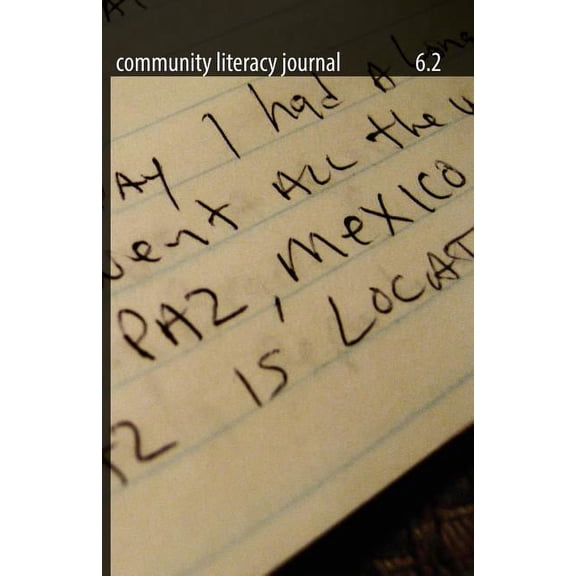 community literacy journal 6.2
AY I had A long
vent ALL the w
PAZ, MeXICO
IS LOCAT